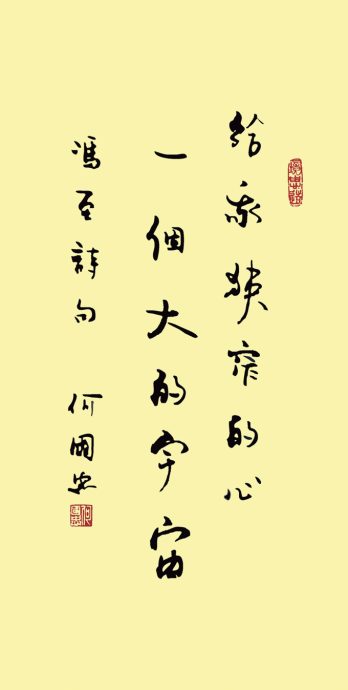 给我狭窄的心
一個大的宇宙
馮至詩句 何國忠